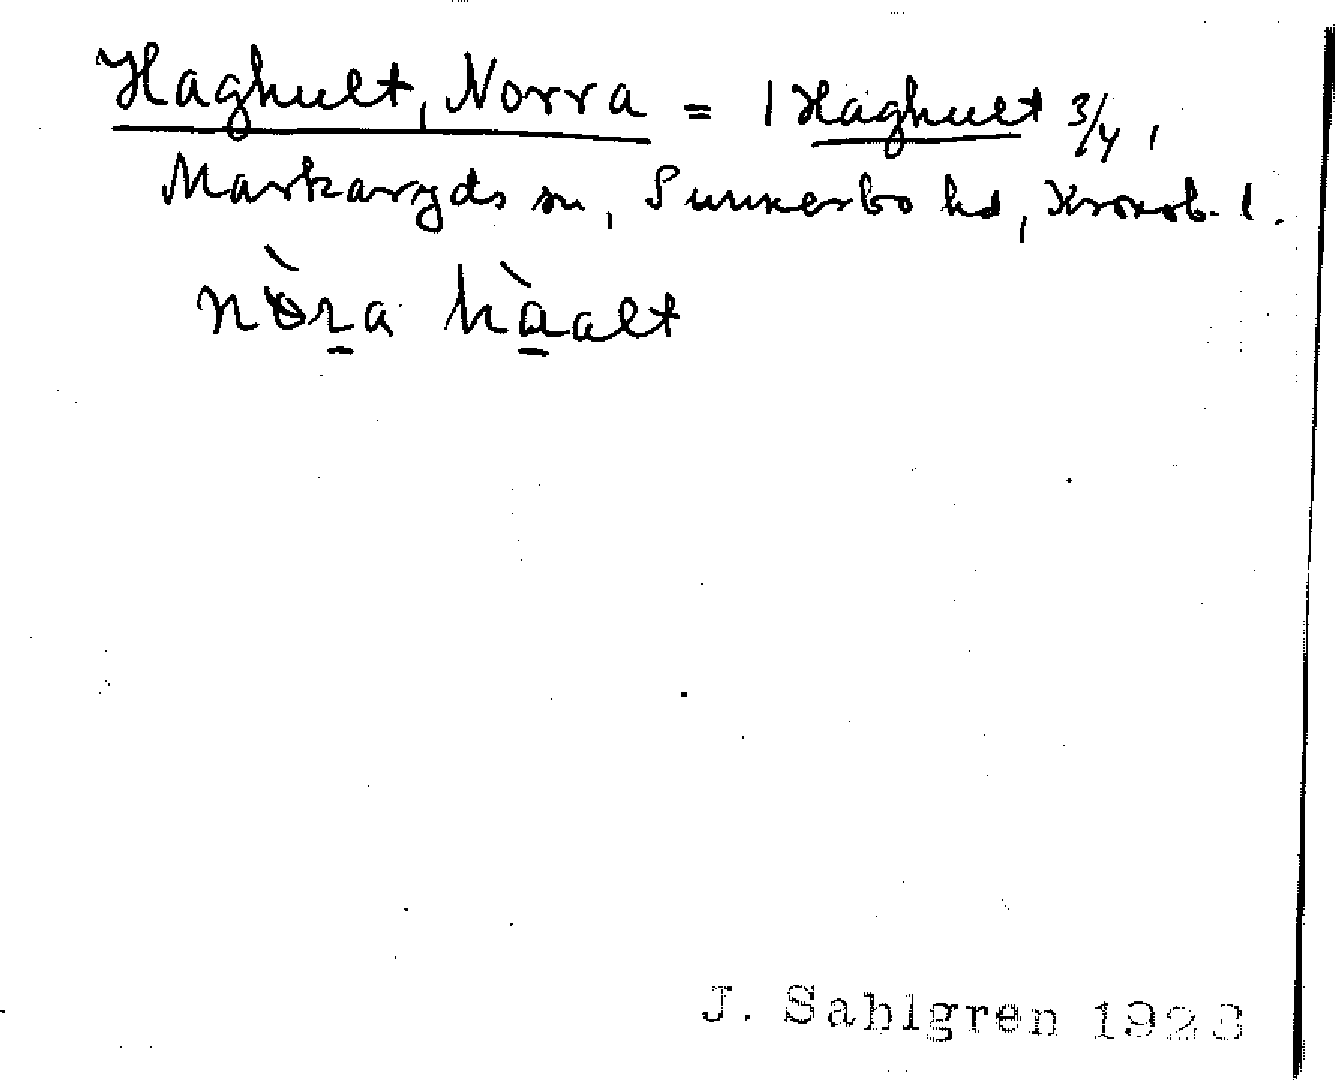 Haghult, Norra = 1 Haghult 3/4,
Markaryds sn, Sunnerbo hd, Kronob. l.
nòra hàalt
J. Sahlgren 1923